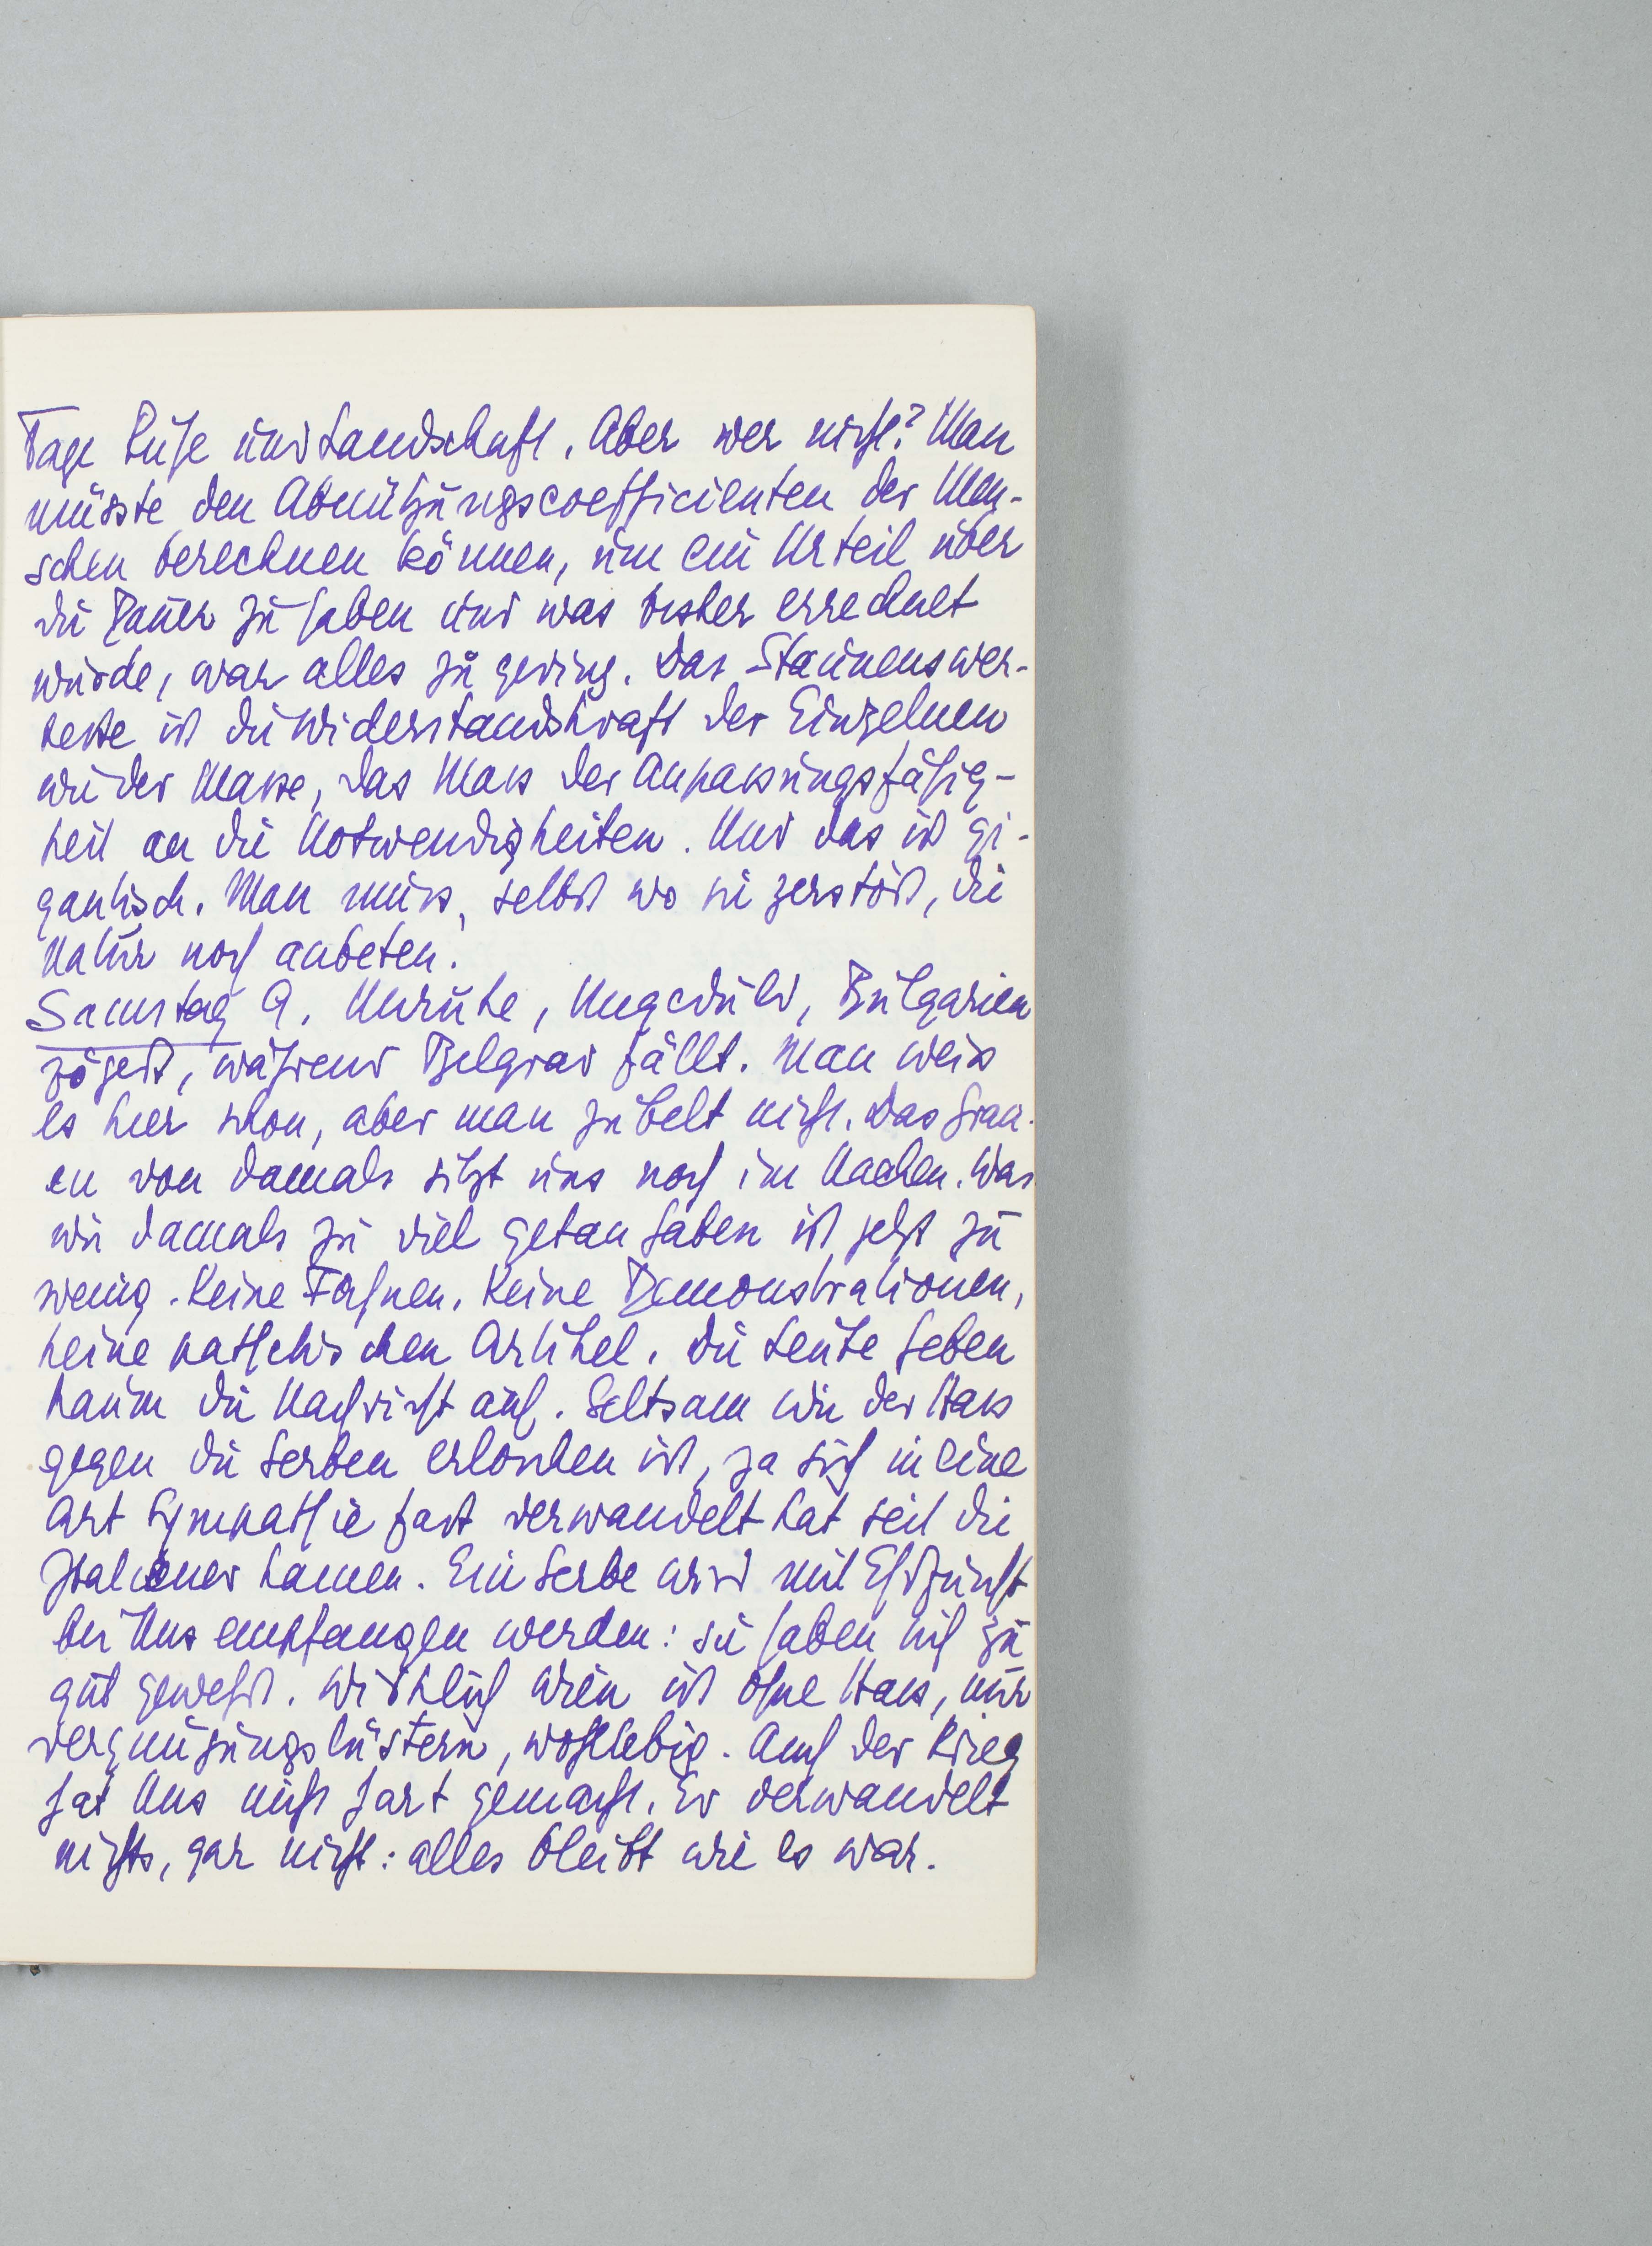 Tage Ruhe und Landschaft. Aber wer nicht? Man
müsste den Abnützungscoefficienten der Men-
schen berechnen können, um ein Urteil über
die Dauer zu haben und was bisher errechnet
wurde, war alles zu gering. Das Staunenswer-
teste ist die Widerstandskraft der Einzelnen
wie der Masse, das Mass der Anpassungsfähig-
keit an die Notwendigkeiten. Und das ist gi-
gantisch. Man muss, selbst wo sie zerstört, die
Natur noch anbeten.
Samstag 9. Unruhe, Ungeduld, Bulgarien
zögert, während Belgrad fällt. Man weiss
es hier schon, aber man jubelt nicht. Das Grau-
en von damals sitzt uns noch im Nacken. Was
wir damals zu viel getan haben ist jetzt zu
wenig. Keine Fahnen, Keine Demonstrationen,
keine pathetischen Artikel. Die Leute heben
kaum die Nachricht auf. Seltsam wie der Hass
gegen die Serben erloschen ist, ja sich in eine
Art Sympathie fast verwandelt hat seit die
Italiener kamen. Ein Serbe wird mit Ehrfurcht
bei Uns empfangen werden: sie haben sich zu
gut gewehrt. Wirklich Wien ist ohne Hass, nur
vergnügungslüstern, wohllebig. Auch der Krieg
hat Uns nicht hart gemacht. Er verwandelt
nichts, gar nicht: alles bleibt wie es war.